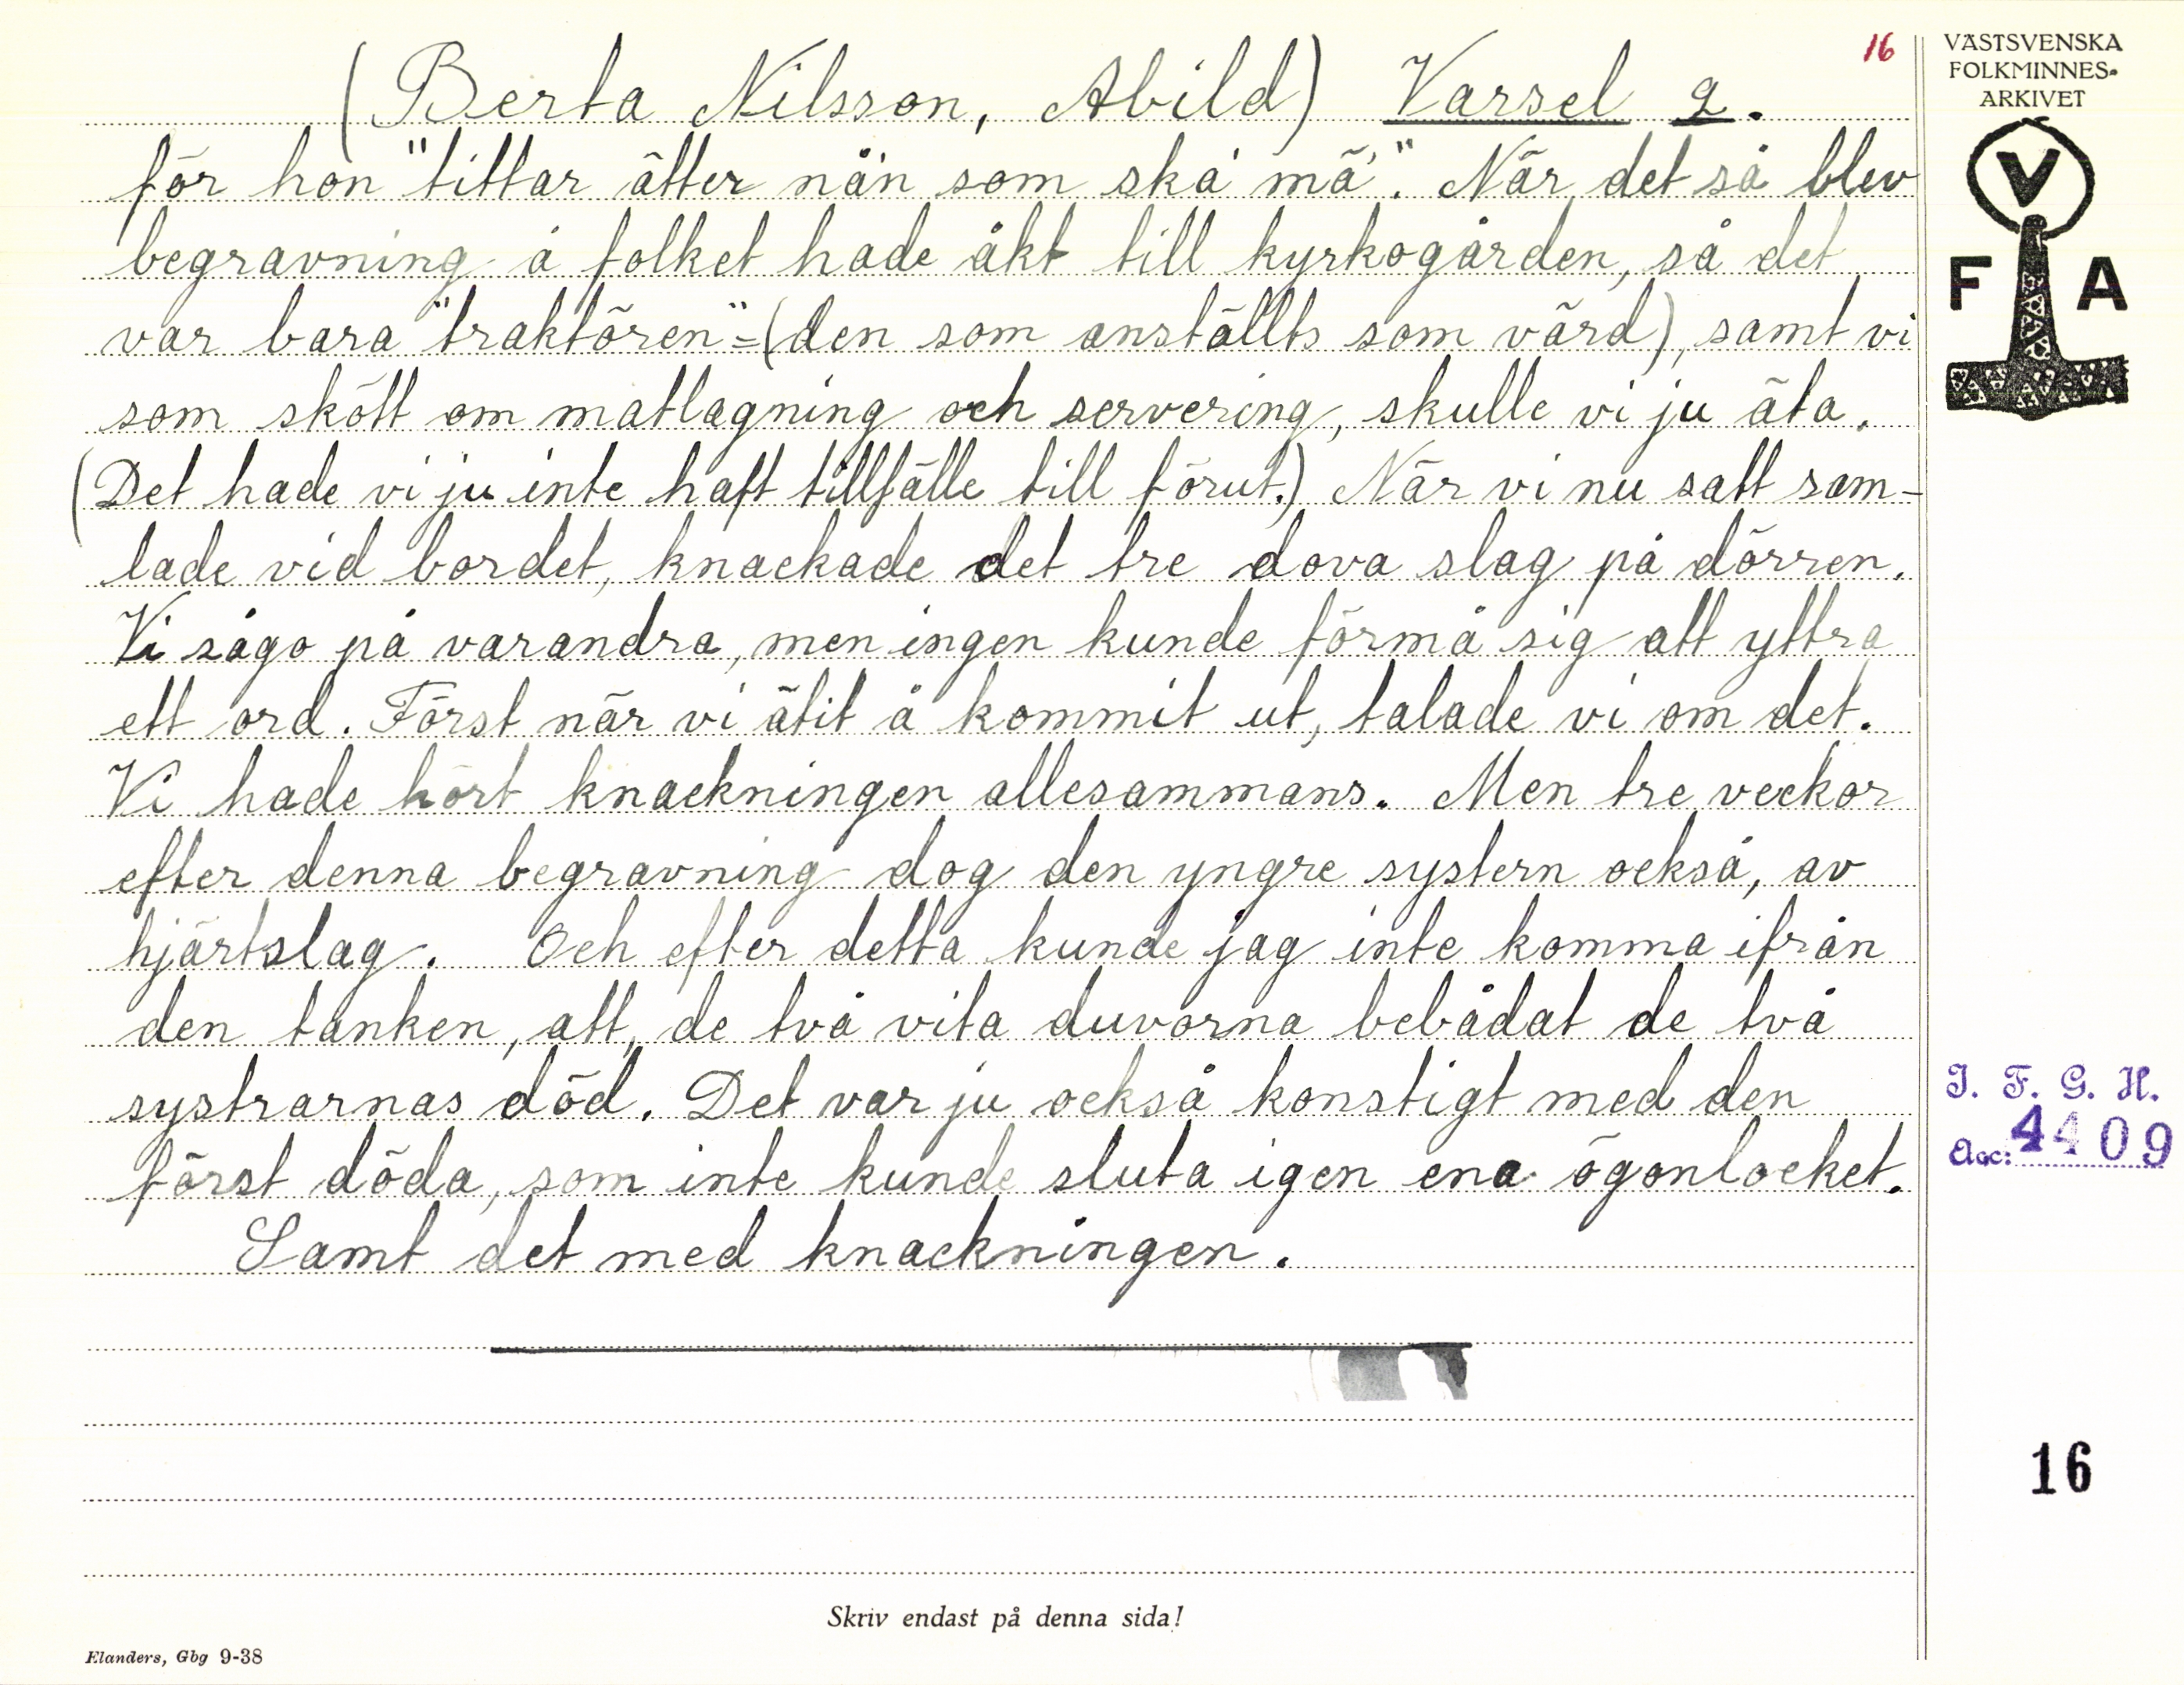 16
(Berta Nilsson, Abild) Varsel 2.
för hon "tittar ätter nå'n som ska' mä'." När det så blev
begravning å folket hade åkt till kyrkogården, så det
var bara "traktören"=(den som anställts som värd), samt vi
som skött om matlagning och servering, skulle vi ju äta.
(Det hade vi ju inte haft tillfälle till förut.) När vi nu satt sam-
lade vid bordet, knackade det tre dova slag på dörren.
Vi sågo på varandra, men ingen kunde förmå sig att yttra
ett ord. Först när vi ätit å kommit ut, talade vi om det.
Vi hade hört knackningen allesammans. Men tre veckor
efter denna begravning dog den yngre systern också, av
hjärtslag. Och efter detta kunde jag inte komma ifrån
den tanken, att, de två vita duvorna bebådat de två
systrarnas död. Det var ju också konstigt med den
först döda, som inte kunde sluta igen ena ögonlocket.
Samt det med knackningen.
Skriv endast på denna sida!
Elanders, Gbg 9-38
VÄSTSVENSKA
FOLKMINNES-
ARKIVET
V
F A
I. F. G. H.
Acc: 4409
16